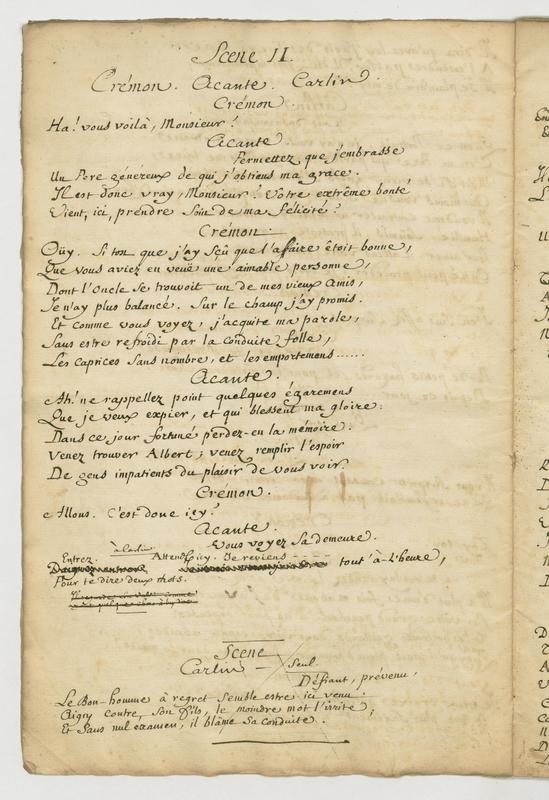 Scene II.
Crémon. Acante. Carlin.
Crémon.
Ha! vous voilà, Monsieur!
Acante.
Permettez que j'embrasse
Un Pere généreux de qui j'obtiens ma grace.
Il est donc vray, Monsieur? Votre extrême bonté
Vient, ici, prendre soin de ma félicité?
Crémon.
Oüy. Si tost que j'ay sçû que l'affaire étoit bonne,
Que vous aviez en veüe une aimable personne,
Dont l'Oncle se trouvoit un de mes vieux amis,
Je n'ay plus balancé. Sur le champ j'ay promis.
Et comme vous voyez, j'acquite ma parole,
Sans estre refroidi par la conduite folle,
Les caprices sans nombre, et les emportemens......
Acante.
Ah! ne rappellez point quelques égaremens
Que je veux expier, et qui blessent ma gloire.
Dans ce jour fortuné perdez-en la mémoire.
Venez trouver Albert; venez remplir l'espoir
De gens impatiens du plaisir de vous voir.
Crémon.
Allons. C'est donc icy?
Acante.
Vous voyez sa demeure.
à Carlin
Entrez. Attends icy. Je reviens - - - -
tout à-l'heure,
Pour te dire deux mots.
Scene
Carlin — seul.
Défiant, prévenu,
Le Bon-homme à regret semble estre ici venu.
Aigry contre son fils, le moindre mot l'irrite;
Et sans nul examen, il blâme sa conduite.